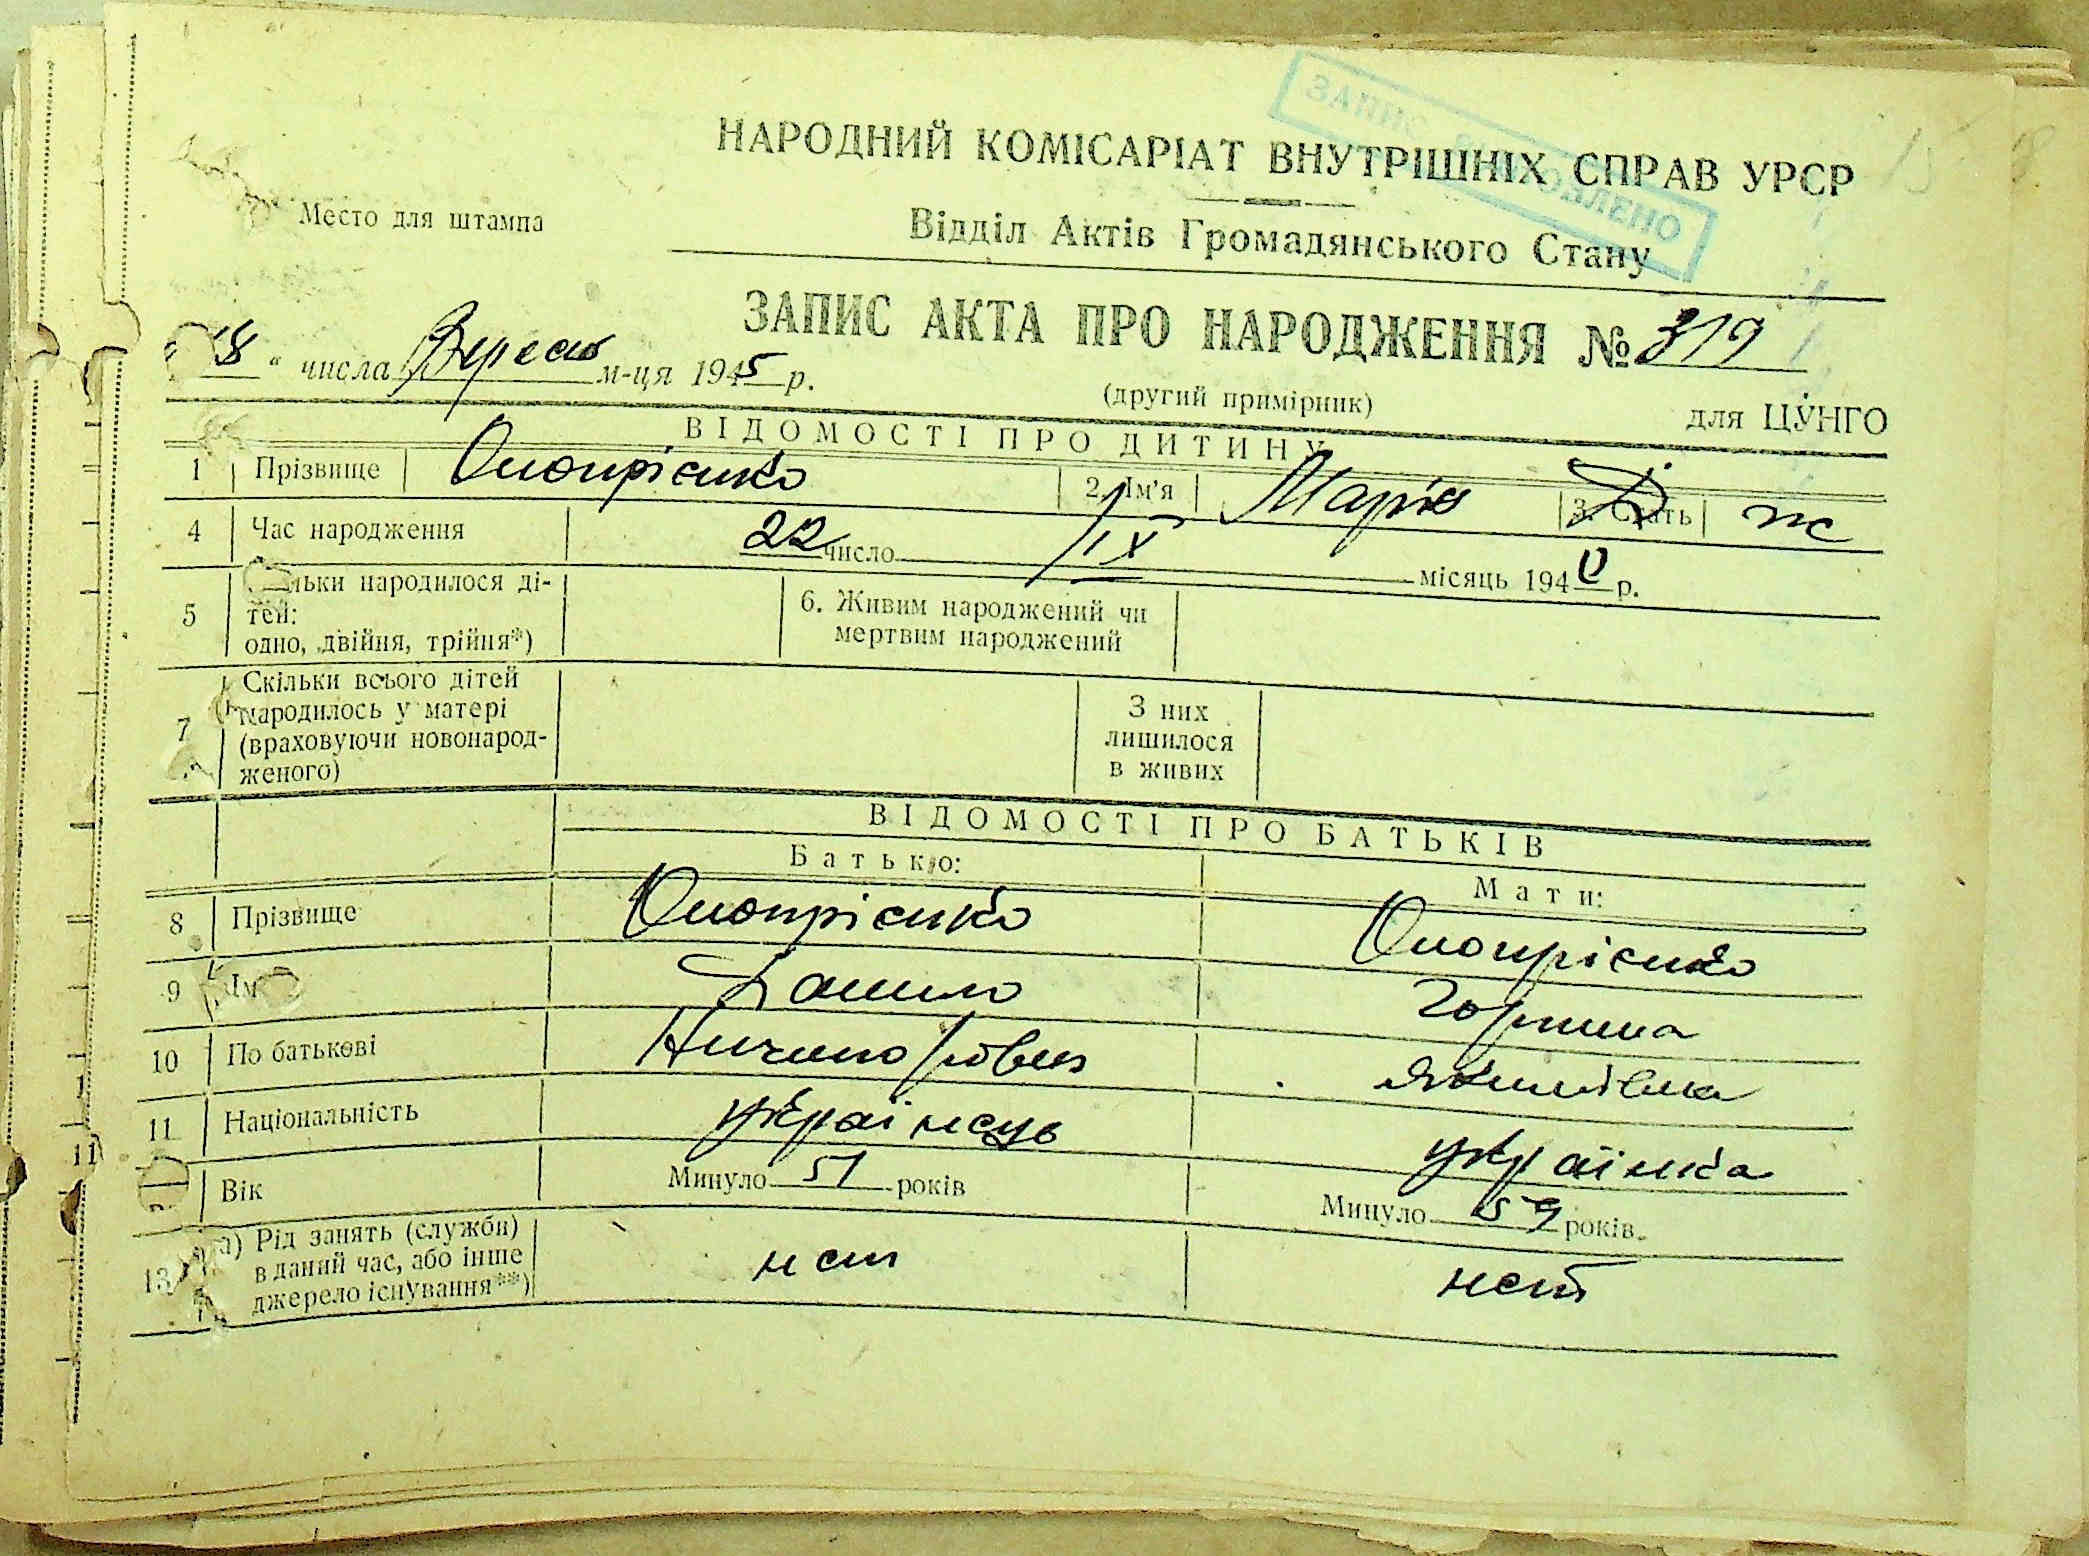 ЗАПИС ВІДНОВЛЕНО
НАРОДНИЙ КОМІСАРІАТ ВНУТРІШНІХ СПРАВ УРСР
Место для штампа
Відділ Актів Громадянського Стану
ЗАПИС АКТА ПРО НАРОДЖЕННЯ № 319
8 " числа Вересня м-ця 1945 р.
(другий примірник)
для ЦУНГО
ВІДОМОСТІ ПРО ДИТИНУ
1 Прізвище Онопрієнко 2. Ім'я Марія Д 3. Стать ж
4 Час народження 22 число IX місяць 1940 р.
5 льки народилося ді-
тей:
одно, двійня, трійня*)
6. Живим народжений чи
мертвим народжений
7 Скільки всього дітей
народилось у матері
(враховуючи новонарод-
женого)
З них
лишилося
в живих
ВІДОМОСТІ ПРО БАТЬКІВ
Батько: Мати:
8 Прізвище Онопрієнко Онопрієнко
9 Ім Данило Горпина
10 По батькові Ничипорович Якимівна
11 Національність українець українка
Вік Минуло 51 років Минуло 59 років
13 а) Рід занять (служби)
в даний час, або інше
джерело існування**)
нет нет
11